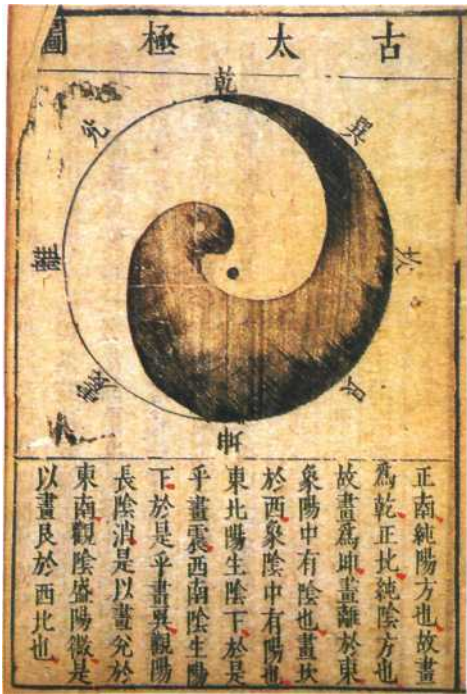 古太極圖
乾
巽
坎
艮
坤
震
離
兌
正南純陽方也故畫
為乾正北純陰方也
故畫為坤畫離於東
象陽中有陰也畫坎
於西象陰中有陽也
東北陽生陰下於是
乎畫震西南陰生陽
下於是乎畫巽觀陽
長陰消是以畫兌於
東南觀陰盛陽微是
以畫艮於西北也